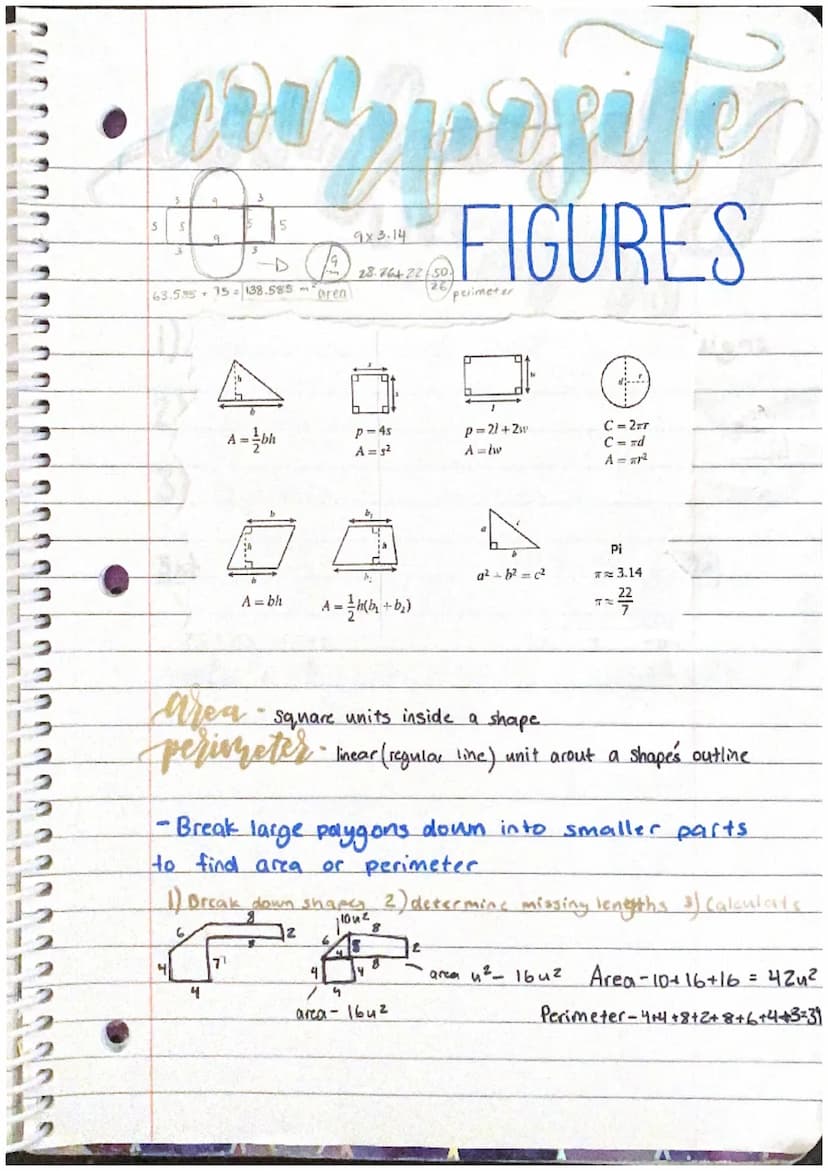 composite
FIGURES
3 9 3
5 5 5 5
3 9 3
9
9 x 3.14
28.26 + 22 50.26
perimeter
63.585 + 75 = 138.585 m² area
h
b
A = 1/2 bh
s
s
p = 4s
A = s²
w
l
p = 2l + 2w
A = lw
d r
C = 2πr
C = πd
A = πr²
b
h
b
A = bh
b₁
h
b₂
A = 1/2 h(b₁ + b₂)
a c
b
a² + b² = c²
Pi
π ≈ 3.14
π ≈ 22/7
area - square units inside a shape
perimeter - linear (regular line) unit arout a shape's outline
- Break large polygons down into smaller parts
to find area or perimeter
1) Break down shapes 2) determine missing lengths 3) Calculate
6 8 2
8
4 7
4
10u²
6 8
4 5 2
4 4 8
4
area u² - 16u²
area - 16u²
Area - 10 + 16 + 16 = 42u²
Perimeter - 4+4+8+2+8+6+4+3=31